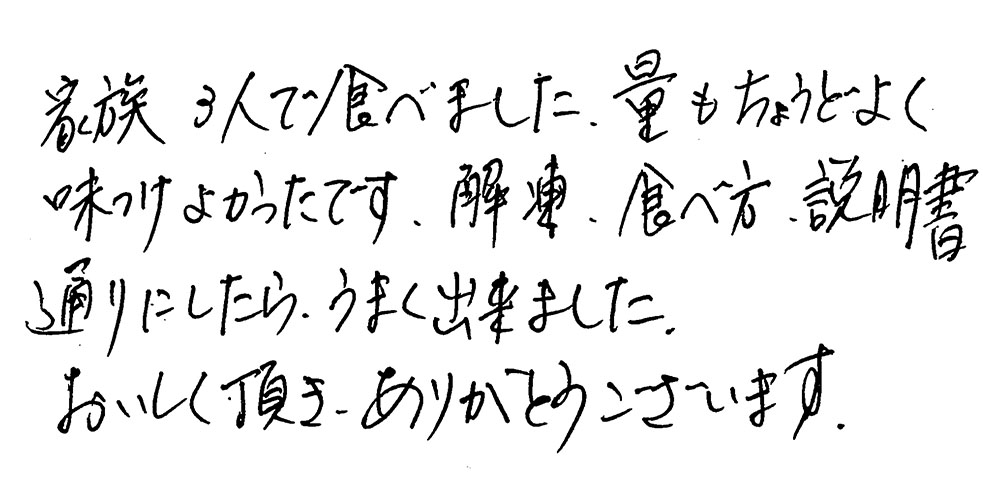 家族 3人で食べました、量もちょうどよく
味つけよかったです、解凍、食べ方、説明書
通りにしたら、うまく出来ました。
おいしく頂き、ありがとうございます。